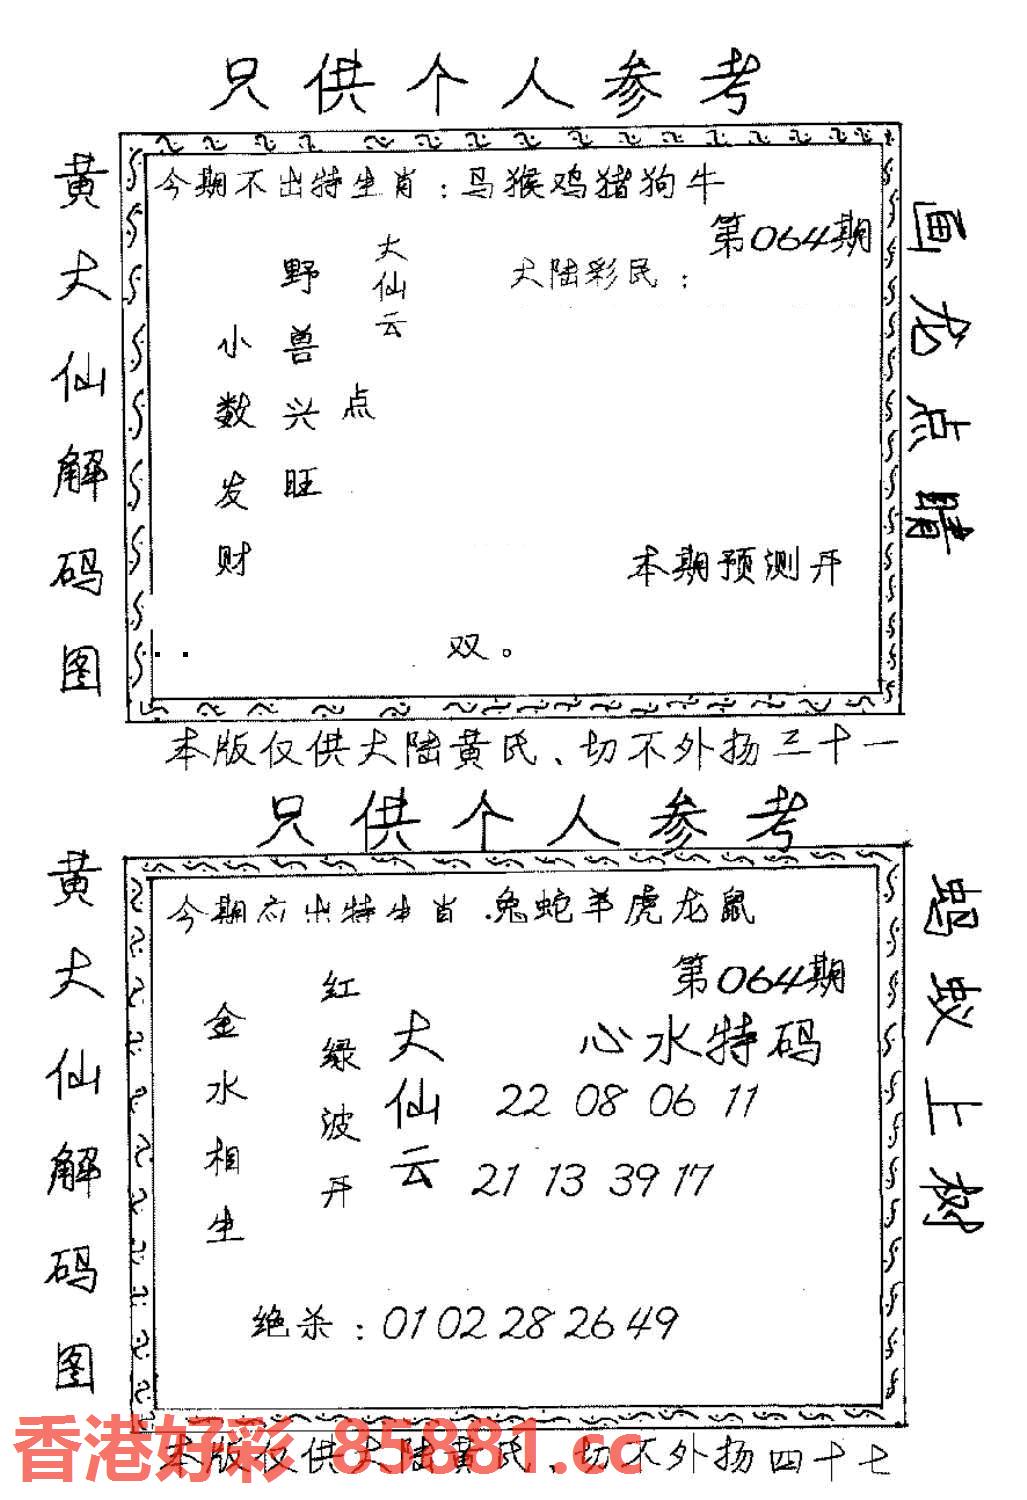 只供个人参考
黄大仙解码图
今期不出特生肖：马猴鸡猪狗牛
第064期
画龙点睛
大陆彩民：
大仙云
野兽兴旺
点
小数发财
本期预测开
双。
本版仅供大陆黄氏、切不外扬三十一
只供个人参考
黄大仙解码图
今期应出特生肖.兔蛇羊虎龙鼠
第064期
蚂蚁上树
心水特码
大仙云
红绿波开
金水相生
22 08 06 11
21 13 39 17
绝杀：01 02 28 26 49
香港好彩 85881.cc
本版仅供大陆黄氏、切不外扬四十七